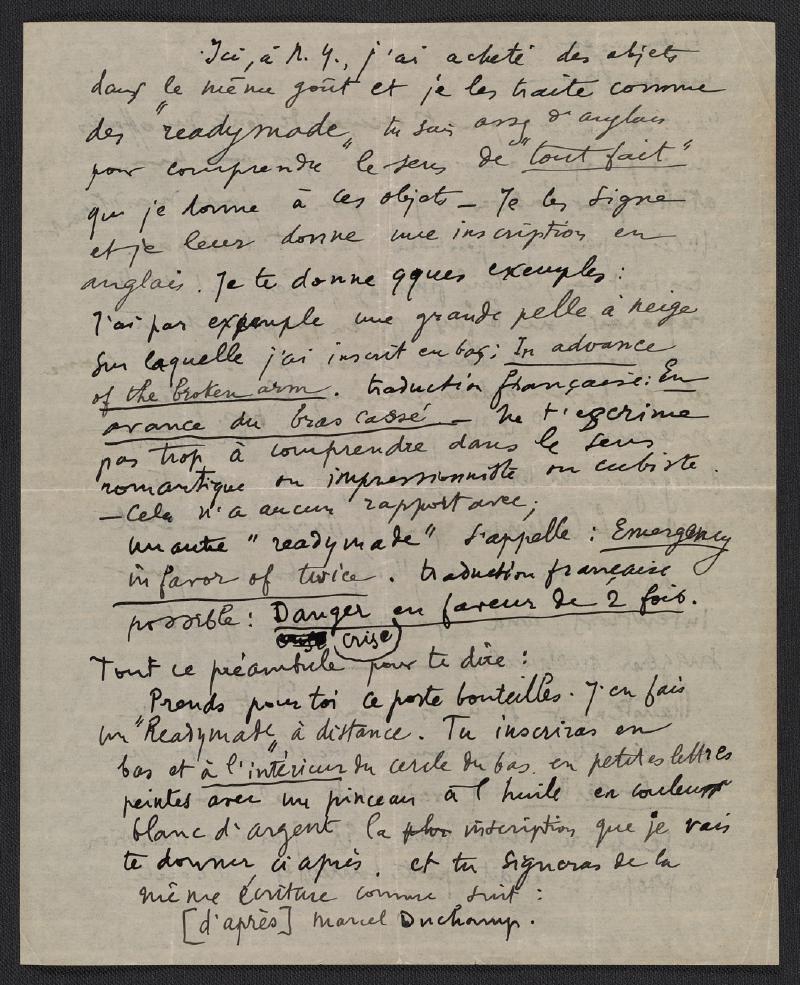 Ici, à N.Y., j'ai acheté des objets
dans le même goût et je les traite comme
des "readymade" tu sais assez d'anglais
pour comprendre le sens de "tout fait"
que je donne à ces objets — Je les signe
et je leur donne une inscription en
anglais. Je te donne qques exemples :
J'ai par exemple une grande pelle à neige
sur laquelle j'ai inscrit en bas : In advance
of the broken arm. traduction française : En
avance du bras cassé — Ne t'escrime
pas trop à comprendre dans le sens
romantique ou impressionniste ou cubiste.
— Cela n'a aucun rapport avec ;
Un autre "readymade" s'appelle : Emergency
in favor of twice. traduction française
possible : Danger en faveur de 2 fois.
(crise)
Tout ce préambule pour te dire :
Prends pour toi ce porte bouteilles. J'en fais
un "Readymade" à distance. Tu inscriras en
bas et à l'intérieur du cercle du bas, en petites lettres
peintes avec un pinceau à l'huile en couleur
blanc d'argent la inscription que je vais
te donner ci après. et tu signeras de la
même écriture comme suit :
[d'après] Marcel Duchamp.